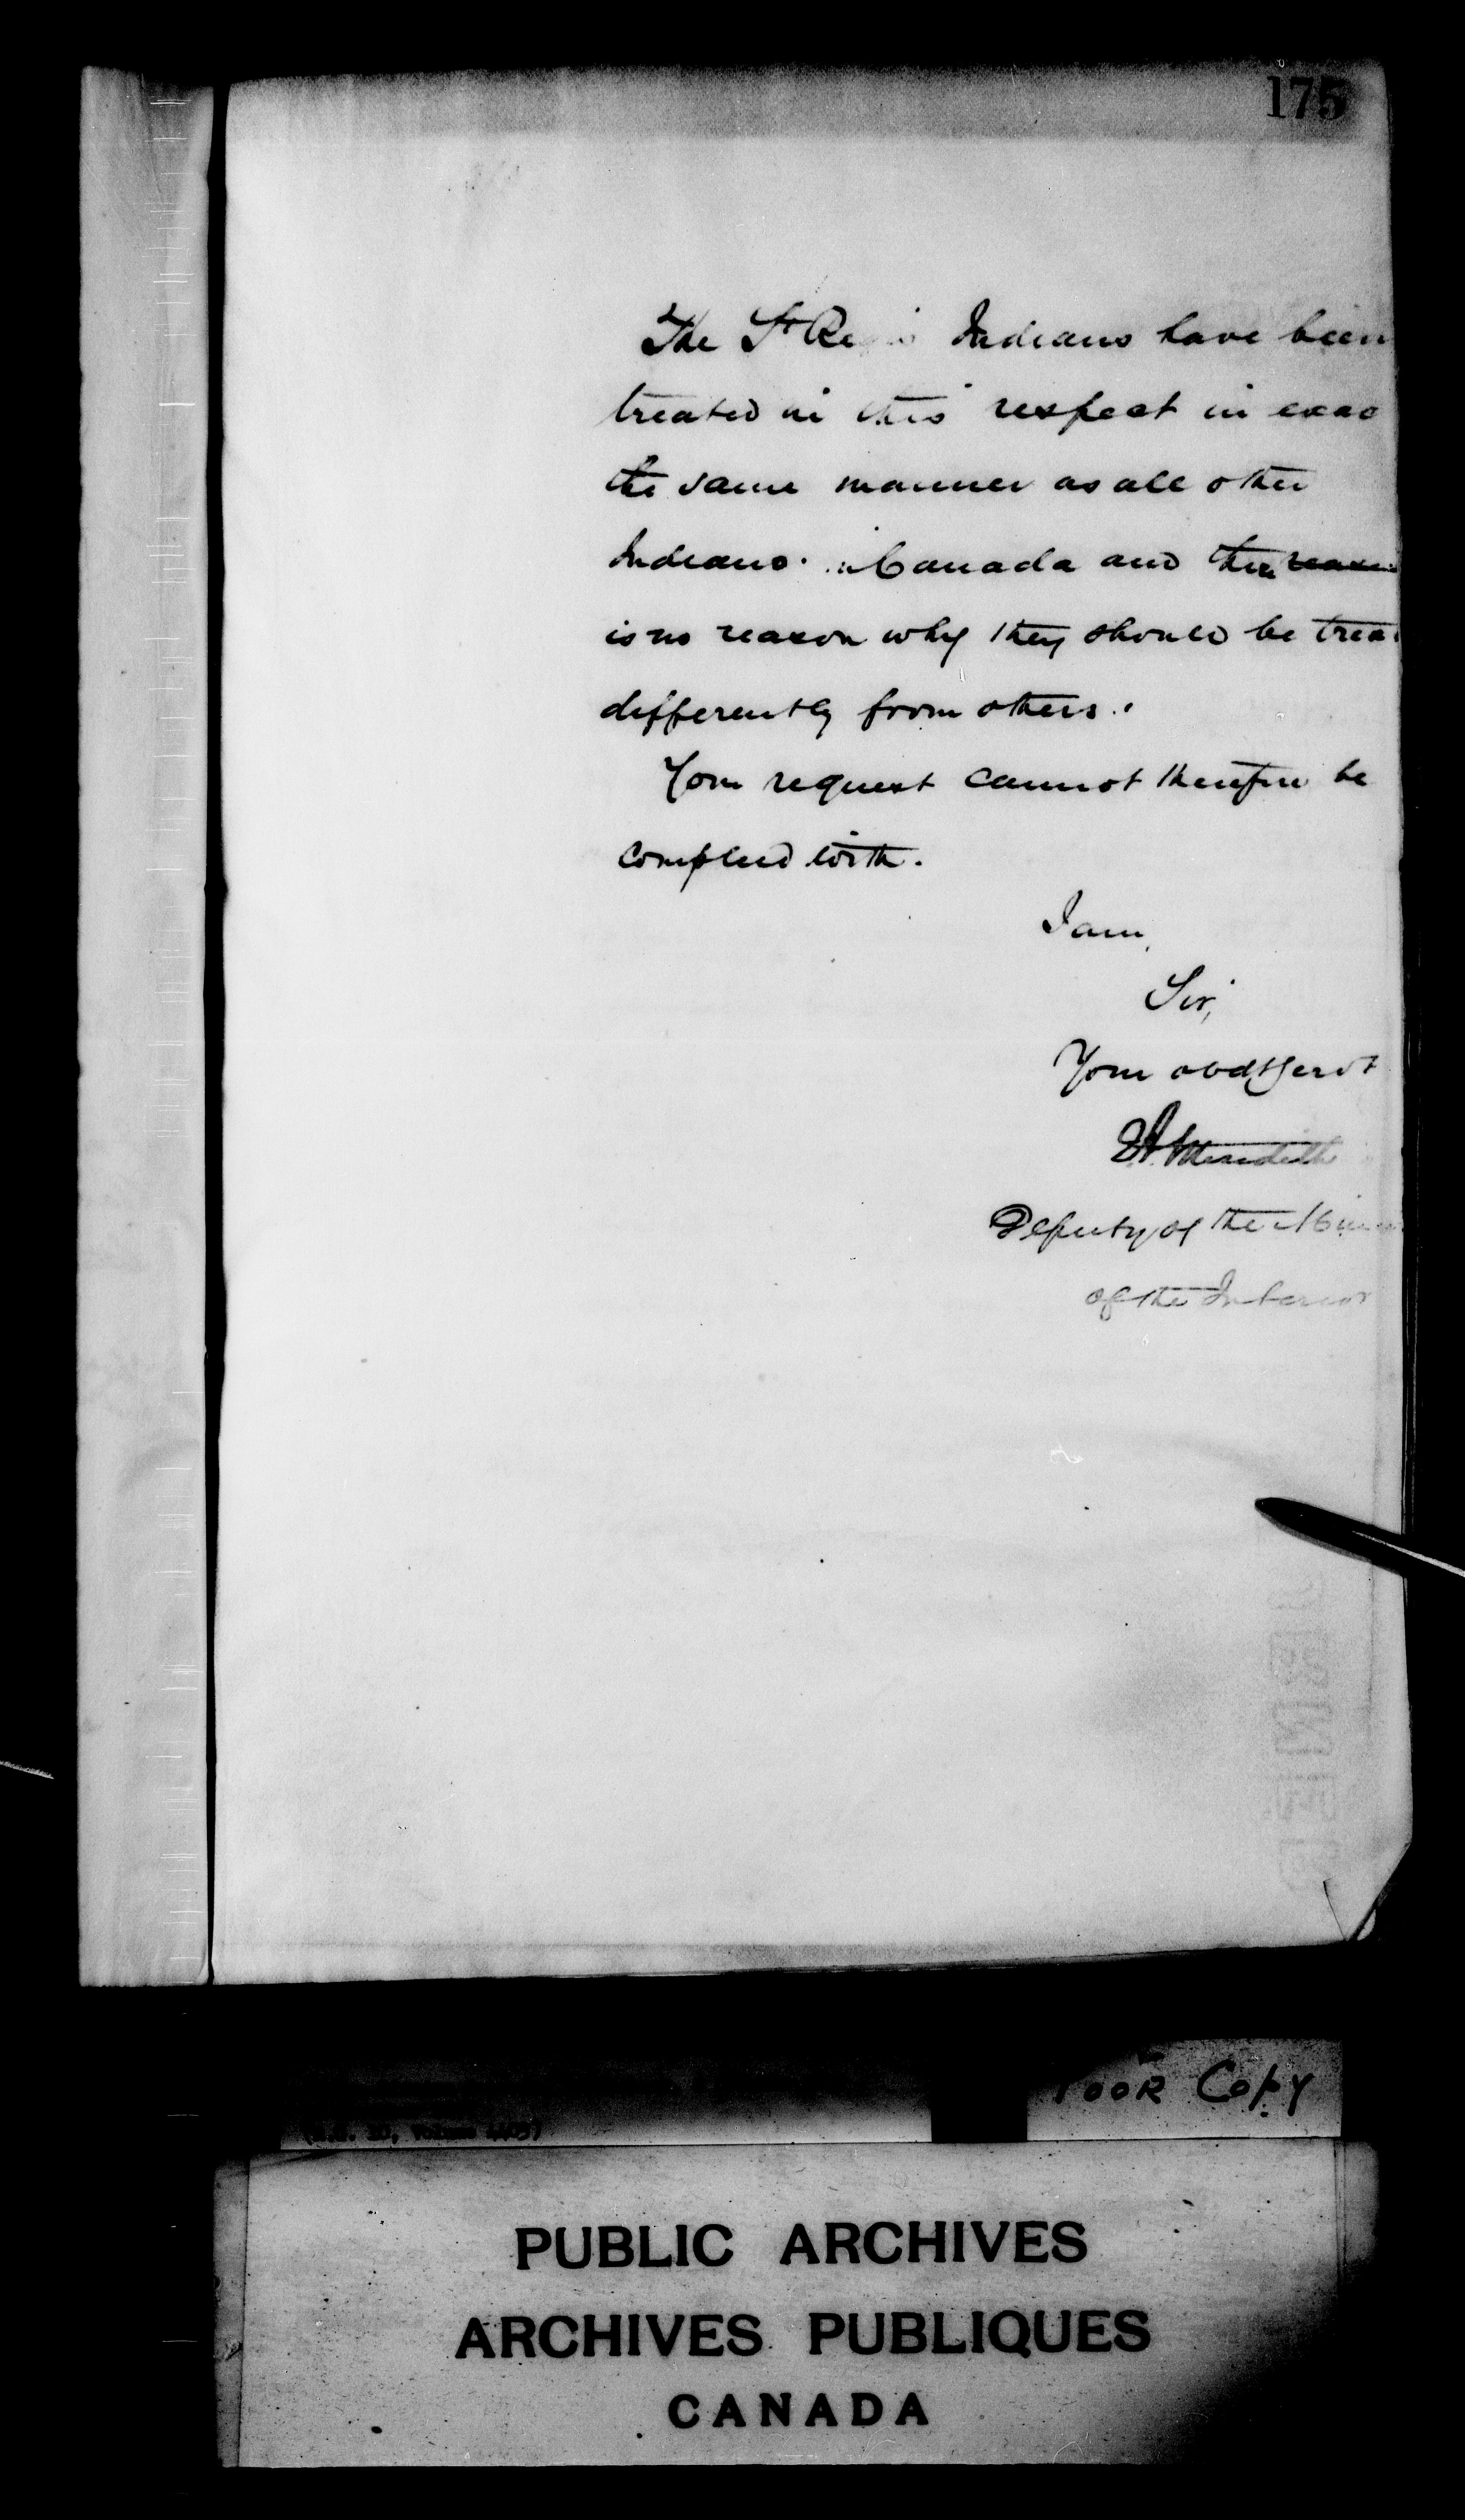 175
The St Regis Indians have been
treated in this respect in exac
the same manner as all other
Indians in Canada and there reason
is no reason why they should be trea
differently from others.
Your request cannot therefore be
complied with.
I am,
Sir,
Your obdt Servt
EA Meredith
Deputy of the Min
of the Interior
Poor Copy
PUBLIC ARCHIVES
ARCHIVES PUBLIQUES
CANADA